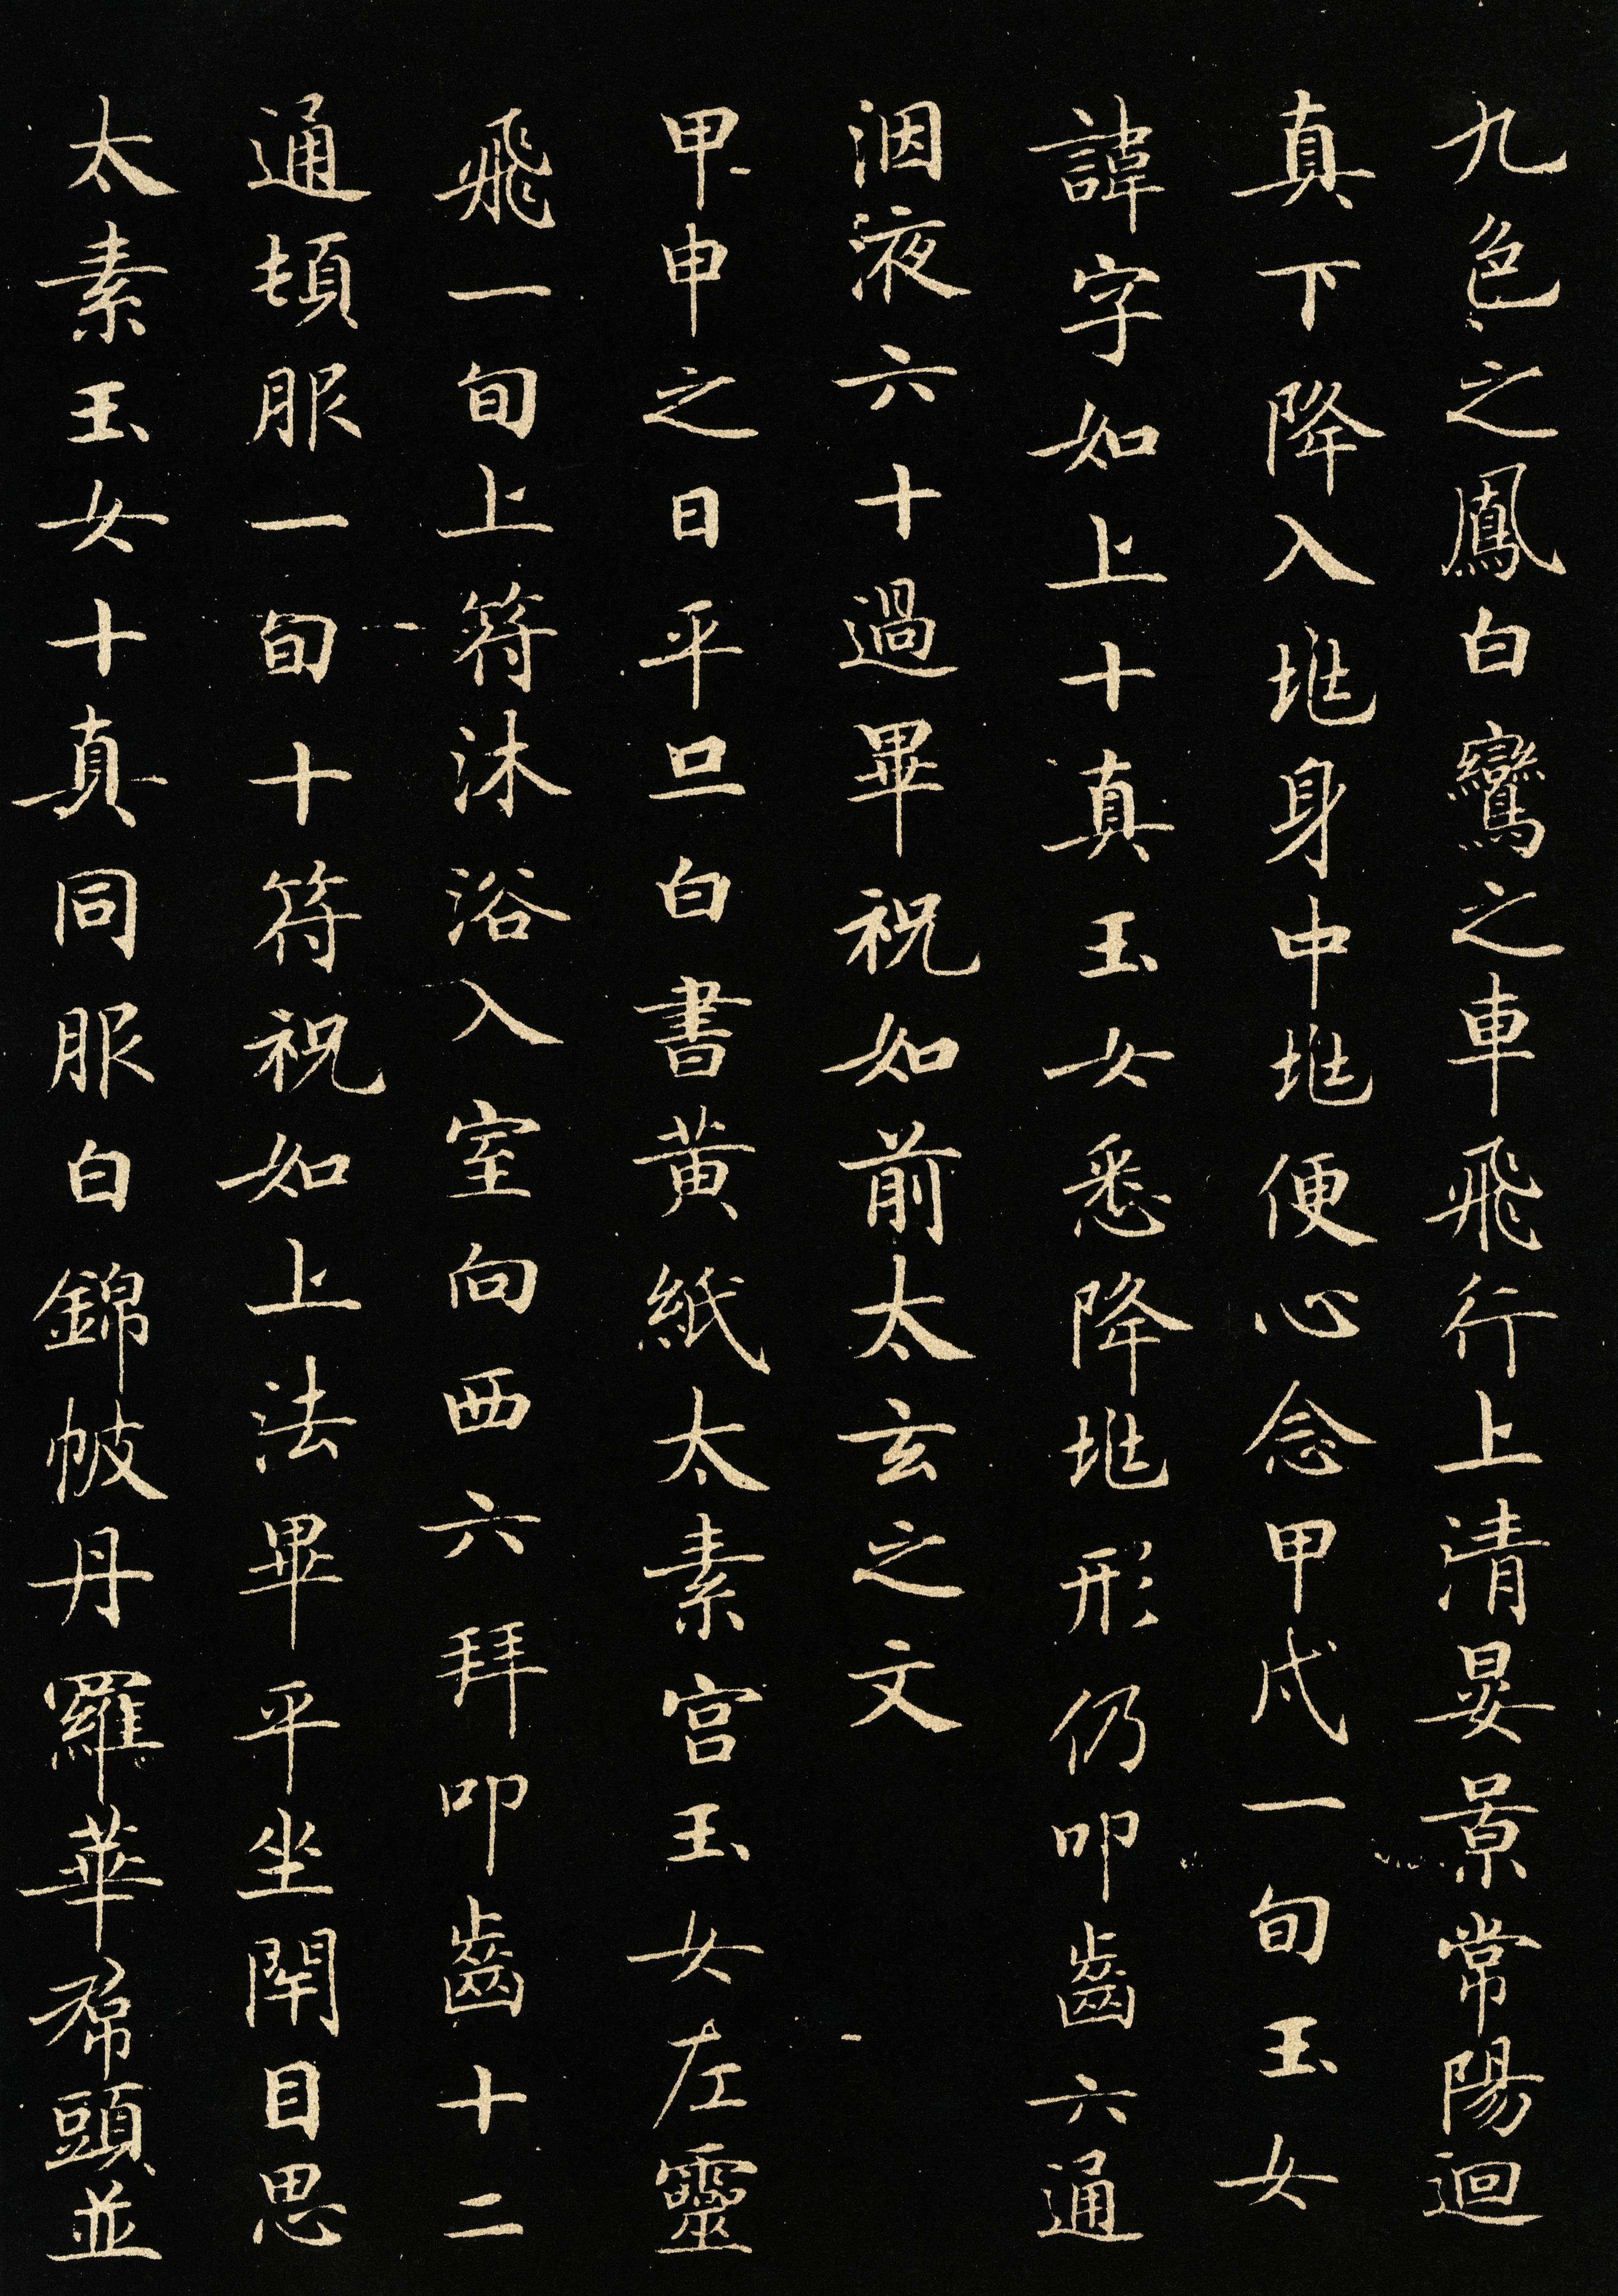 九色之鳳白鸞之車飛行上清晏景常陽迴
真下降入兆身中兆便心念甲戌一旬玉女
諱字如上十真玉女悉降兆形仍叩齒六通
洇液六十過畢祝如前太玄之文
甲申之日平旦白書黄紙太素宫玉女左靈
飛一旬上符沐浴入室向西六拜叩齒十二
通頓服一旬十符祝如上法畢平坐閇目思
太素玉女十真同服白錦帔丹羅華帬頭並